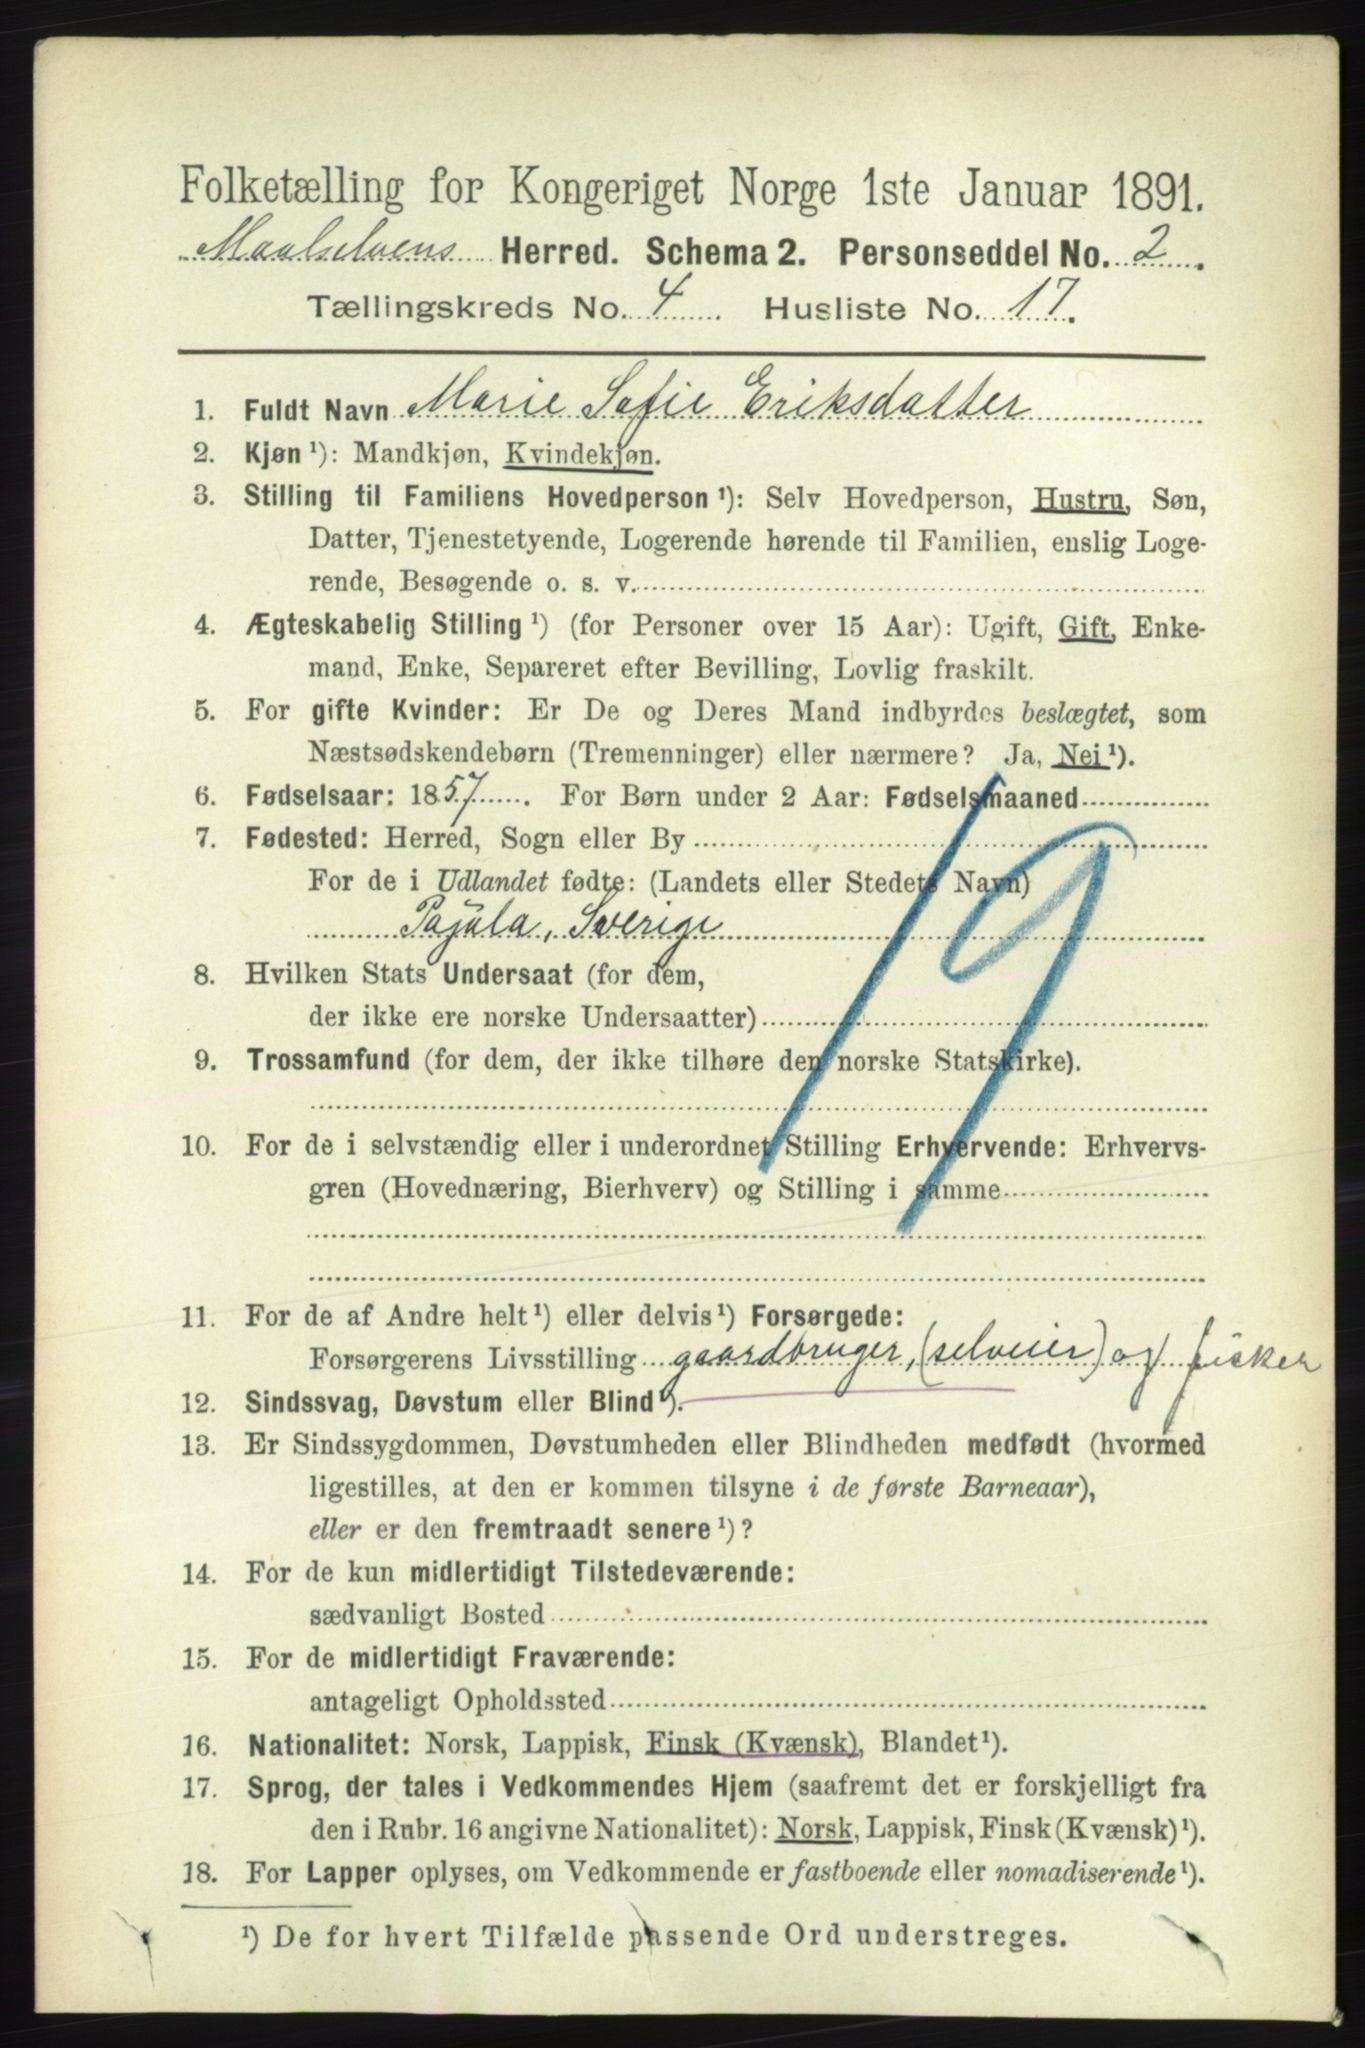 Folketælling for Kongeriget Norge 1ste Januar 1891.
Maalselvens Herred. Schema 2. Personseddel No. 2.
Tællingskreds No. 4. Husliste No. 17.
1. Fuldt Navn Marie Sofie Eriksdatter
2. Kjøn ¹): Mandkjøn, Kvindekjøn.
3. Stilling til Familiens Hovedperson ¹): Selv Hovedperson, Hustru, Søn,
Datter, Tjenestetyende, Logerende hørende til Familien, enslig Loge-
rende, Besøgende o. s. v.
4. Ægteskabelig Stilling ¹) (for Personer over 15 Aar): Ugift, Gift, Enke-
mand, Enke, Separeret efter Bevilling, Lovlig fraskilt.
5. For gifte Kvinder: Er De og Deres Mand indbyrdes beslægtet, som
Næstsødskendebørn (Tremenninger) eller nærmere? Ja, Nei ¹).
6. Fødselsaar: 1857. For Børn under 2 Aar: Fødselsmaaned
7. Fødested: Herred, Sogn eller By
For de i Udlandet fødte: (Landets eller Stedets Navn)
Pajala, Sverige
19
8. Hvilken Stats Undersaat (for dem,
der ikke ere norske Undersaatter)
9. Trossamfund (for dem, der ikke tilhøre den norske Statskirke).
10. For de i selvstændig eller i underordnet Stilling Erhvervende: Erhvervs-
gren (Hovednæring, Bierhverv) og Stilling i samme
11. For de af Andre helt ¹) eller delvis ¹) Forsørgede:
Forsørgerens Livsstilling gaardbruger, (selveier) og fisker
12. Sindssvag, Døvstum eller Blind ¹).
13. Er Sindssygdommen, Døvstumheden eller Blindheden medfødt (hvormed
ligestilles, at den er kommen tilsyne i de første Barneaar),
eller er den fremtraadt senere ¹)?
14. For de kun midlertidigt Tilstedeværende:
sædvanligt Bosted
15. For de midlertidigt Fraværende:
antageligt Opholdssted
16. Nationalitet: Norsk, Lappisk, Finsk (Kvænsk), Blandet ¹).
17. Sprog, der tales i Vedkommendes Hjem (saafremt det er forskjelligt fra
den i Rubr. 16 angivne Nationalitet): Norsk, Lappisk, Finsk (Kvænsk) ¹).
18. For Lapper oplyses, om Vedkommende er fastboende eller nomadiserende ¹).
¹) De for hvert Tilfælde passende Ord understreges.